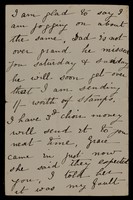 I am glad to say I
am jogging on about
the same, Dad is not
over grand, he misses
you Saturday & Sunday
he will soon get over
that I am sending
1/- worth of stamps,
I have 3/- choir money
will send it to you
next time, Gracie
came in just now
she said they expected
you, I told her
it was my fault